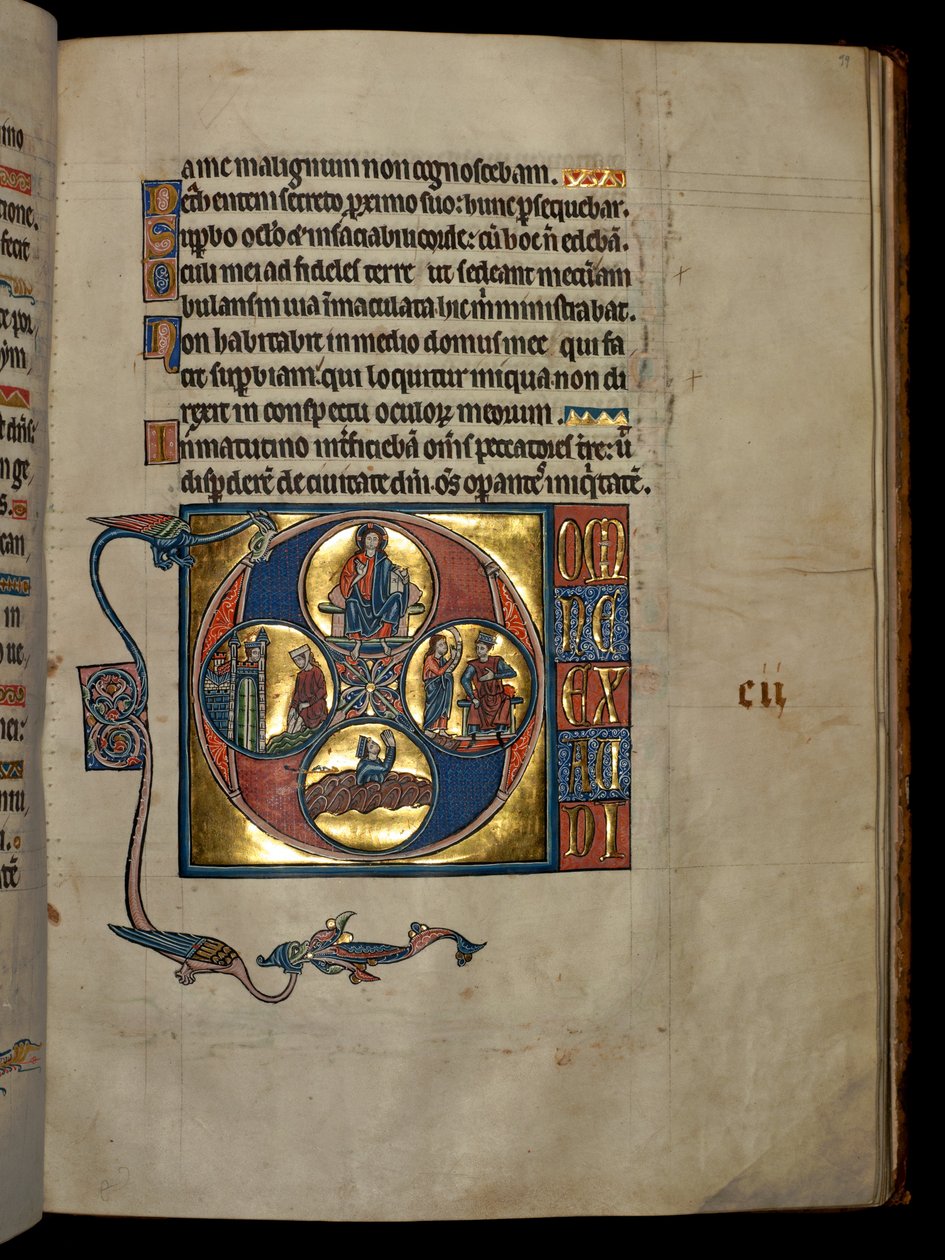 99
a me malignum non cognoscebam.
Det͛hentem secreto ꝓximo suo: hunc ꝑsequebar.
Suꝑbo oc̄lo & insaciabili corde: cū hoc ñ edebā.
Oculi mei ad fideles terre ut sedeant mecū am
bulans in uia īmaculata. hic m̄ ministrabat.
Non habitabit in medio domus mee qui fa
cit suꝑbiam. qui loquitur iniqua. non di
rexit in conspectu oculoꝝ meorum.
In matutino int̄ficiebā om̄s peccatores t̄re: ut
disꝑderē de ciuitate dn̄i. o̅s oꝑantes iniq̇tatē.
D
OM
NE
EX
AU
DI
cii